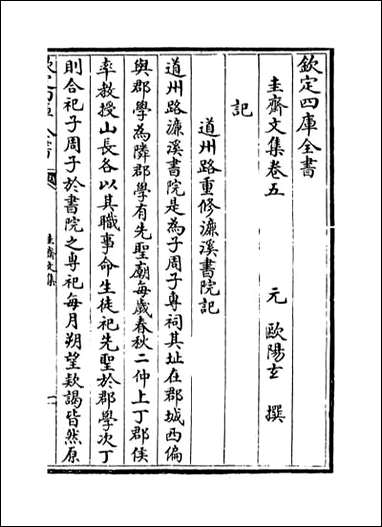 欽定四庫全書
圭齋文集卷五
元 歐陽玄 撰
記
道州路重修濂溪書院記
道州路濂溪書院是為子周子專祠其址在郡城西偏
與郡學為隣郡學有先聖廟每歲春秋二仲上丁郡侯
率教授山長各以其職事命生徒祀先聖於郡學次丁
則合祀子周子於書院之專祀每月朔望欵謁皆然原
圭齋文集